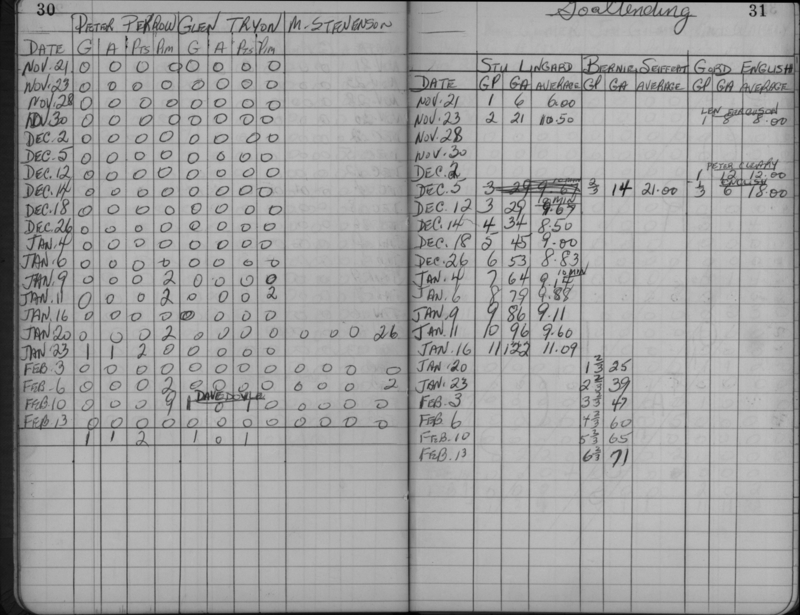 30
PETER PERROW GLEN TRYON M. STEVENSON
DATE G A PTS PIM G A PTS PIM
NOV. 21 0 0 0 0 0 0 0 0
NOV. 23 0 0 0 0 0 0 0 0
NOV. 28 0 0 0 0 0 0 0 0
NOV. 30 0 0 0 0 0 0 0 0
DEC. 2 0 0 0 0 0 0 0 0
DEC. 5 0 0 0 0 0 0 0 0
DEC. 12 0 0 0 0 0 0 0 0
DEC. 14 0 0 0 0 0 0 0 0
DEC. 18 0 0 0 0 0 0 0 0
DEC. 26 0 0 0 0 0 0 0 0
JAN. 4 0 0 0 0 0 0 0 0
JAN. 6 0 0 0 0 0 0 0 0
JAN. 9 0 0 0 2 0 0 0 0
JAN. 11 0 0 0 2 0 0 0 2
JAN. 16 0 0 0 0 0 0 0 0
JAN 20 0 0 0 2 0 0 0 0 0 0 0 26
JAN 23 1 1 2 0 0 0 0 0
FEB. 3 0 0 0 0 0 0 0 0 0 0 0 0
FEB. 6 0 0 0 2 0 0 0 0 0 0 0 2
DAVE DOYLE
FEB. 10 0 0 0 9 1 0 1 0 0 0 0 0
FEB. 13 0 0 0 0 0 0 0 0 0 0 0 0
1 1 2 1 0 1
Goaltending 31
STU LINGARD BERNIE SEIFFERT GORD ENGLISH
DATE GP GA AVERAGE GP GA AVERAGE GP GA AVERAGE
NOV. 21 1 6 6.00
LEN FERGUSON
NOV. 23 2 21 10.50 1 8 8.00
NOV. 28
NOV. 30
PETER CLEARY
DEC. 2 1 12 12.00
10 MIN ENGLISH
DEC. 5 3 29 9.67 2/3 14 21.00 1/3 6 18.00
10 MIN
DEC. 12 3 29 9.67
DEC. 14 4 34 8.50
DEC. 18 5 45 9.00
DEC. 26 6 53 8.83
10 MIN
JAN. 4 7 64 9.14
JAN. 6 8 79 9.88
JAN. 9 9 86 9.11
JAN. 11 10 96 9.60
JAN. 16 11 122 11.09
JAN. 20 1 2/3 25
JAN. 23 2 2/3 39
FEB. 3 3 2/3 47
FEB. 6 4 2/3 60
FEB. 10 5 2/3 65
FEB. 13 6 2/3 71